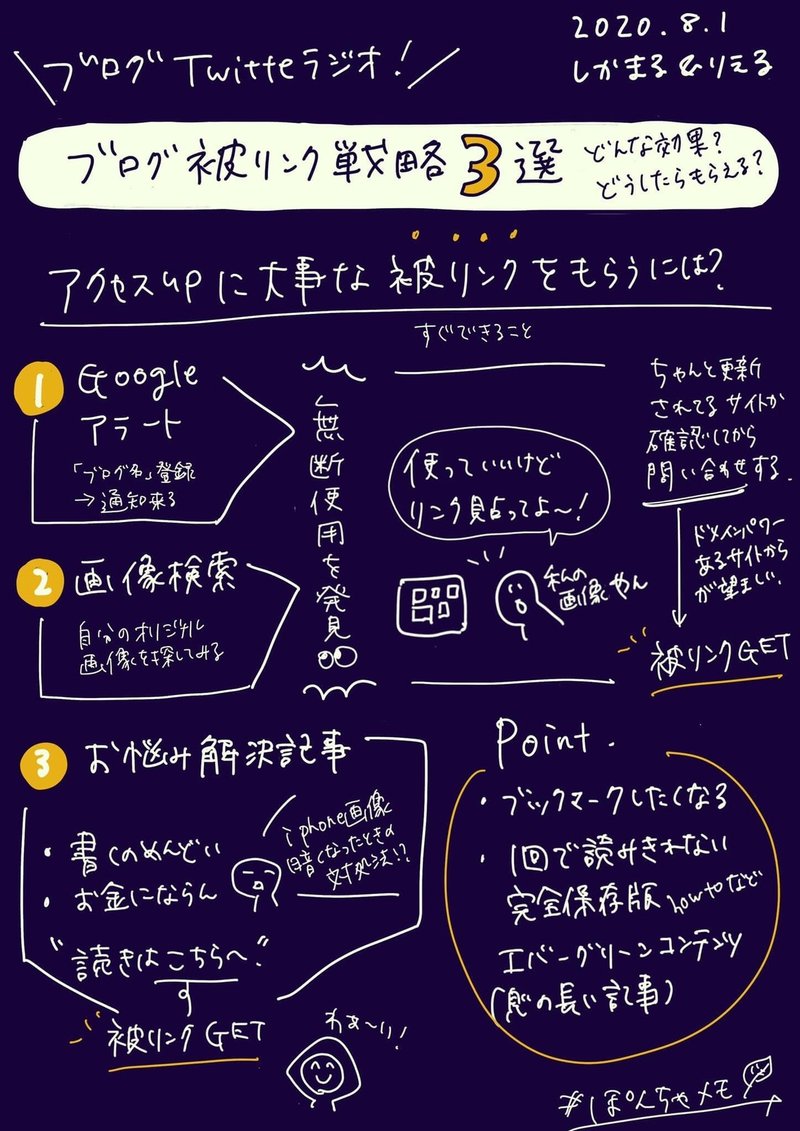 ブログTwitteラジオ!
2020.8.1
しかまる&りえる
ブログ被リンク戦略3選
どんな効果?
どうしたらもらえる?
アクセスUPに大事な被リンクをもらうには?
すぐできること
1 Google
アラート
「ブログ名」登録
→通知来る
2 画像検索
自分のオリジナル
画像を探してみる
無断使用を発見
使っていいけど
リンク貼ってよ〜!
私の
画像やん
ちゃんと更新
されてるサイトか
確認してから
問い合わせする。
ドメインパワー
あるサイトから
が望ましい.
被リンクGET
3 お悩み解決記事
・書くのめんどい
・お金にならん
iphone画像
暗くなったときの
対処法!?
"読きはこちらへ."
被リンクGET
わぁ〜い!
Point.
・ブックマークしたくなる
・1回で読みきれない
完全保存版 howtoなど
エバーグリーンコンテンツ
(息の長い記事)
#ぽんちゃメモ